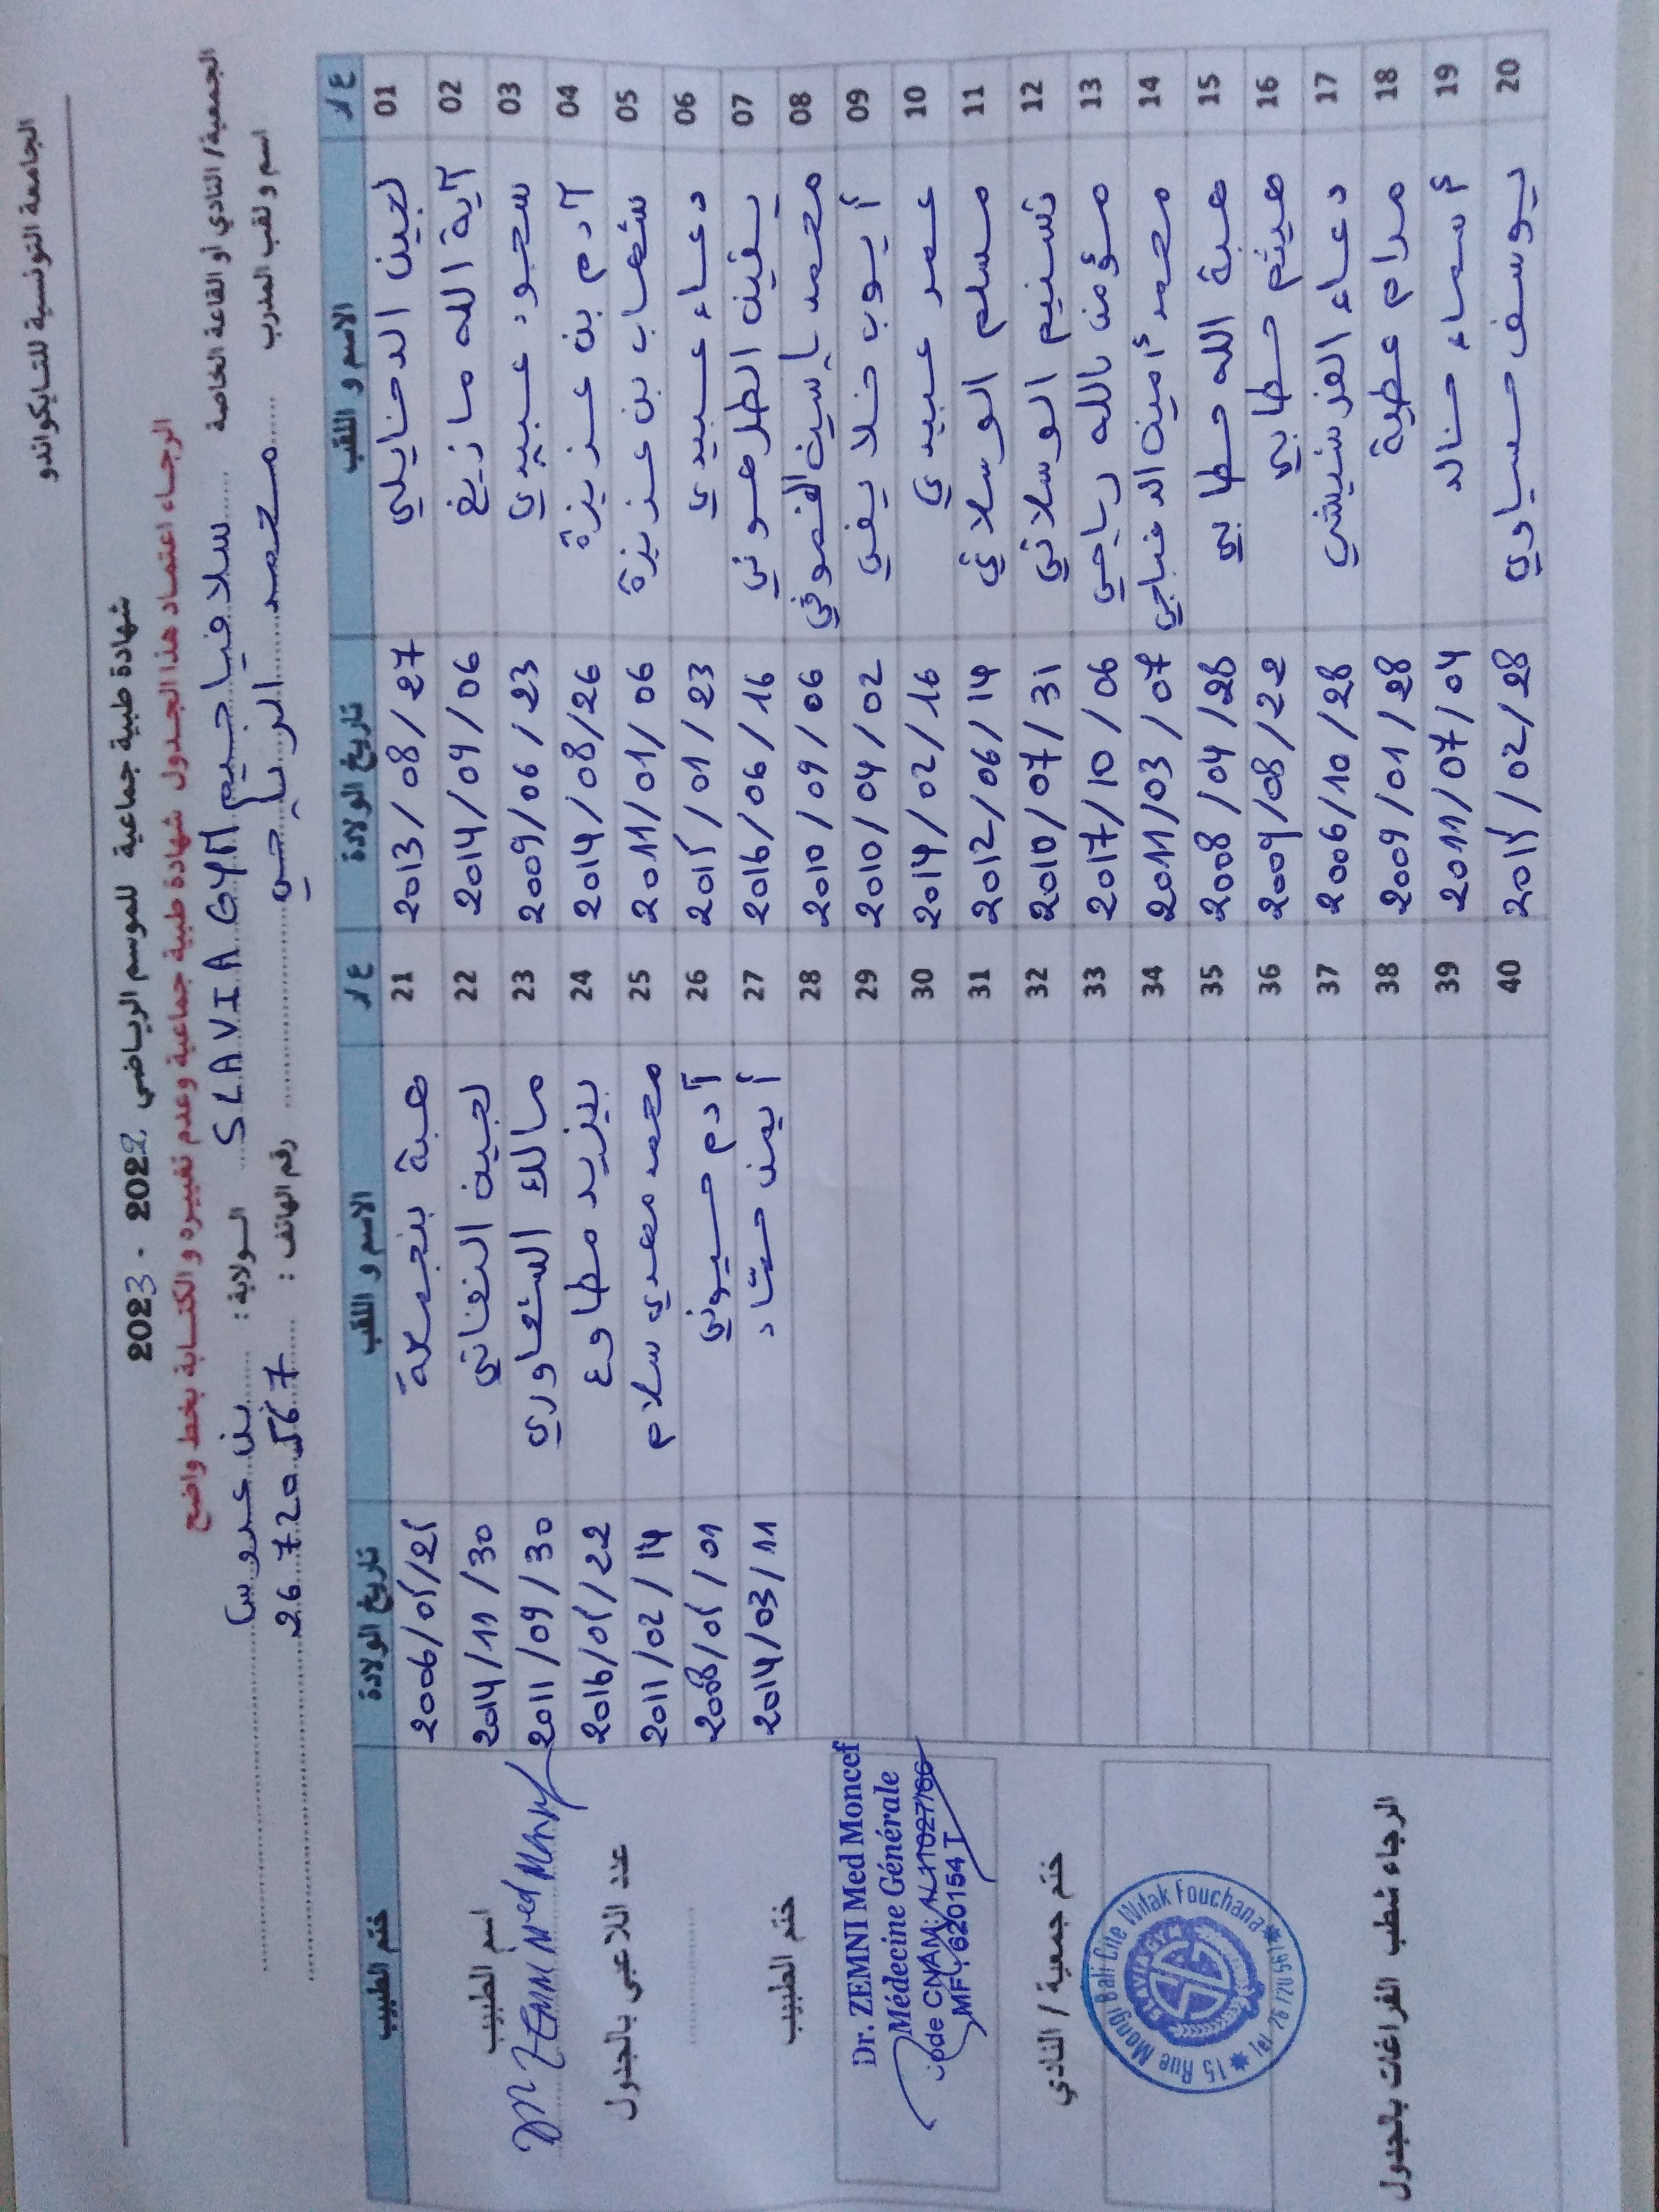 الجامعة التونسية للتايكواندو
شهادة طبية جماعية للموسم الرياضي 2022 - 2023
الرجاء اعتماد هذا الجدول شهادة طبية جماعية وعدم تغييره و الكتابة بخط واضح
الجمعية/ النادي أو القاعة الخاصة سلافيا جيم SLAVIA GYM الولاية : بن عروس
اسم و لقب المدرب محمد الرياحي رقم الهاتف : 26 720 567
ع/ر الاسم و اللقب تاريخ الولادة ع/ر الاسم و اللقب تاريخ الولادة ختم الطبيب
01 لجين الدخايلي 2013/08/27 21 هبة بنجمعة 2006/05/25
02 آية الله مازيغ 2014/09/06 22 لجين النفاتي 2014/11/30
03 سجود عبيدي 2009/06/23 23 مالك الشعاوري 2011/09/30
04 آدم بن عزيزة 2014/08/26 24 يزيد مطاوع 2016/05/22
05 شهاب بن عزيزة 2011/01/06 25 محمد مهدي سلام 2011/02/14
06 دعاء عبيدي 2015/01/23 26 آدم حسيوني 2008/05/01
07 يقين الطرهوني 2016/06/16 27 أيمن حشاد 2014/03/11
08 محمد ياسين 2010/09/06 28
09 أيوب خلايفي 2010/04/02 29
10 عمر عبيدي 2014/02/16 30
11 مسلم الوسلاتي 2012/06/14 31
12 تسنيم الوسلاتي 2010/07/31 32
13 مؤمن بالله رياحي 2017/10/06 33
14 محمد أمين 2011/03/07 34
15 هبة الله حطابي 2008/04/28 35
16 هيثم حطابي 2009/08/22 36
17 دعاء الفرشيشي 2006/10/28 37
18 مرام عطية 2009/01/28 38
19 أسماء خالد 2011/07/04 39
20 يوسف حسياوي 2015/02/28 40
اسم الطبيب
Dr ZEMNI Med Moncef
عدد اللاعبي بالجدول
ختم الطبيب
Dr. ZEMNI Med Moncef
Médecine Générale
code CNAM:
MF: 620154 T
ختم جمعية / النادي
SLAVIA GYM
15 Rue Mongi Bali Cite Wifak Fouchana
Tel 26 720 567
الرجاء شطب الفراغات بالجدول